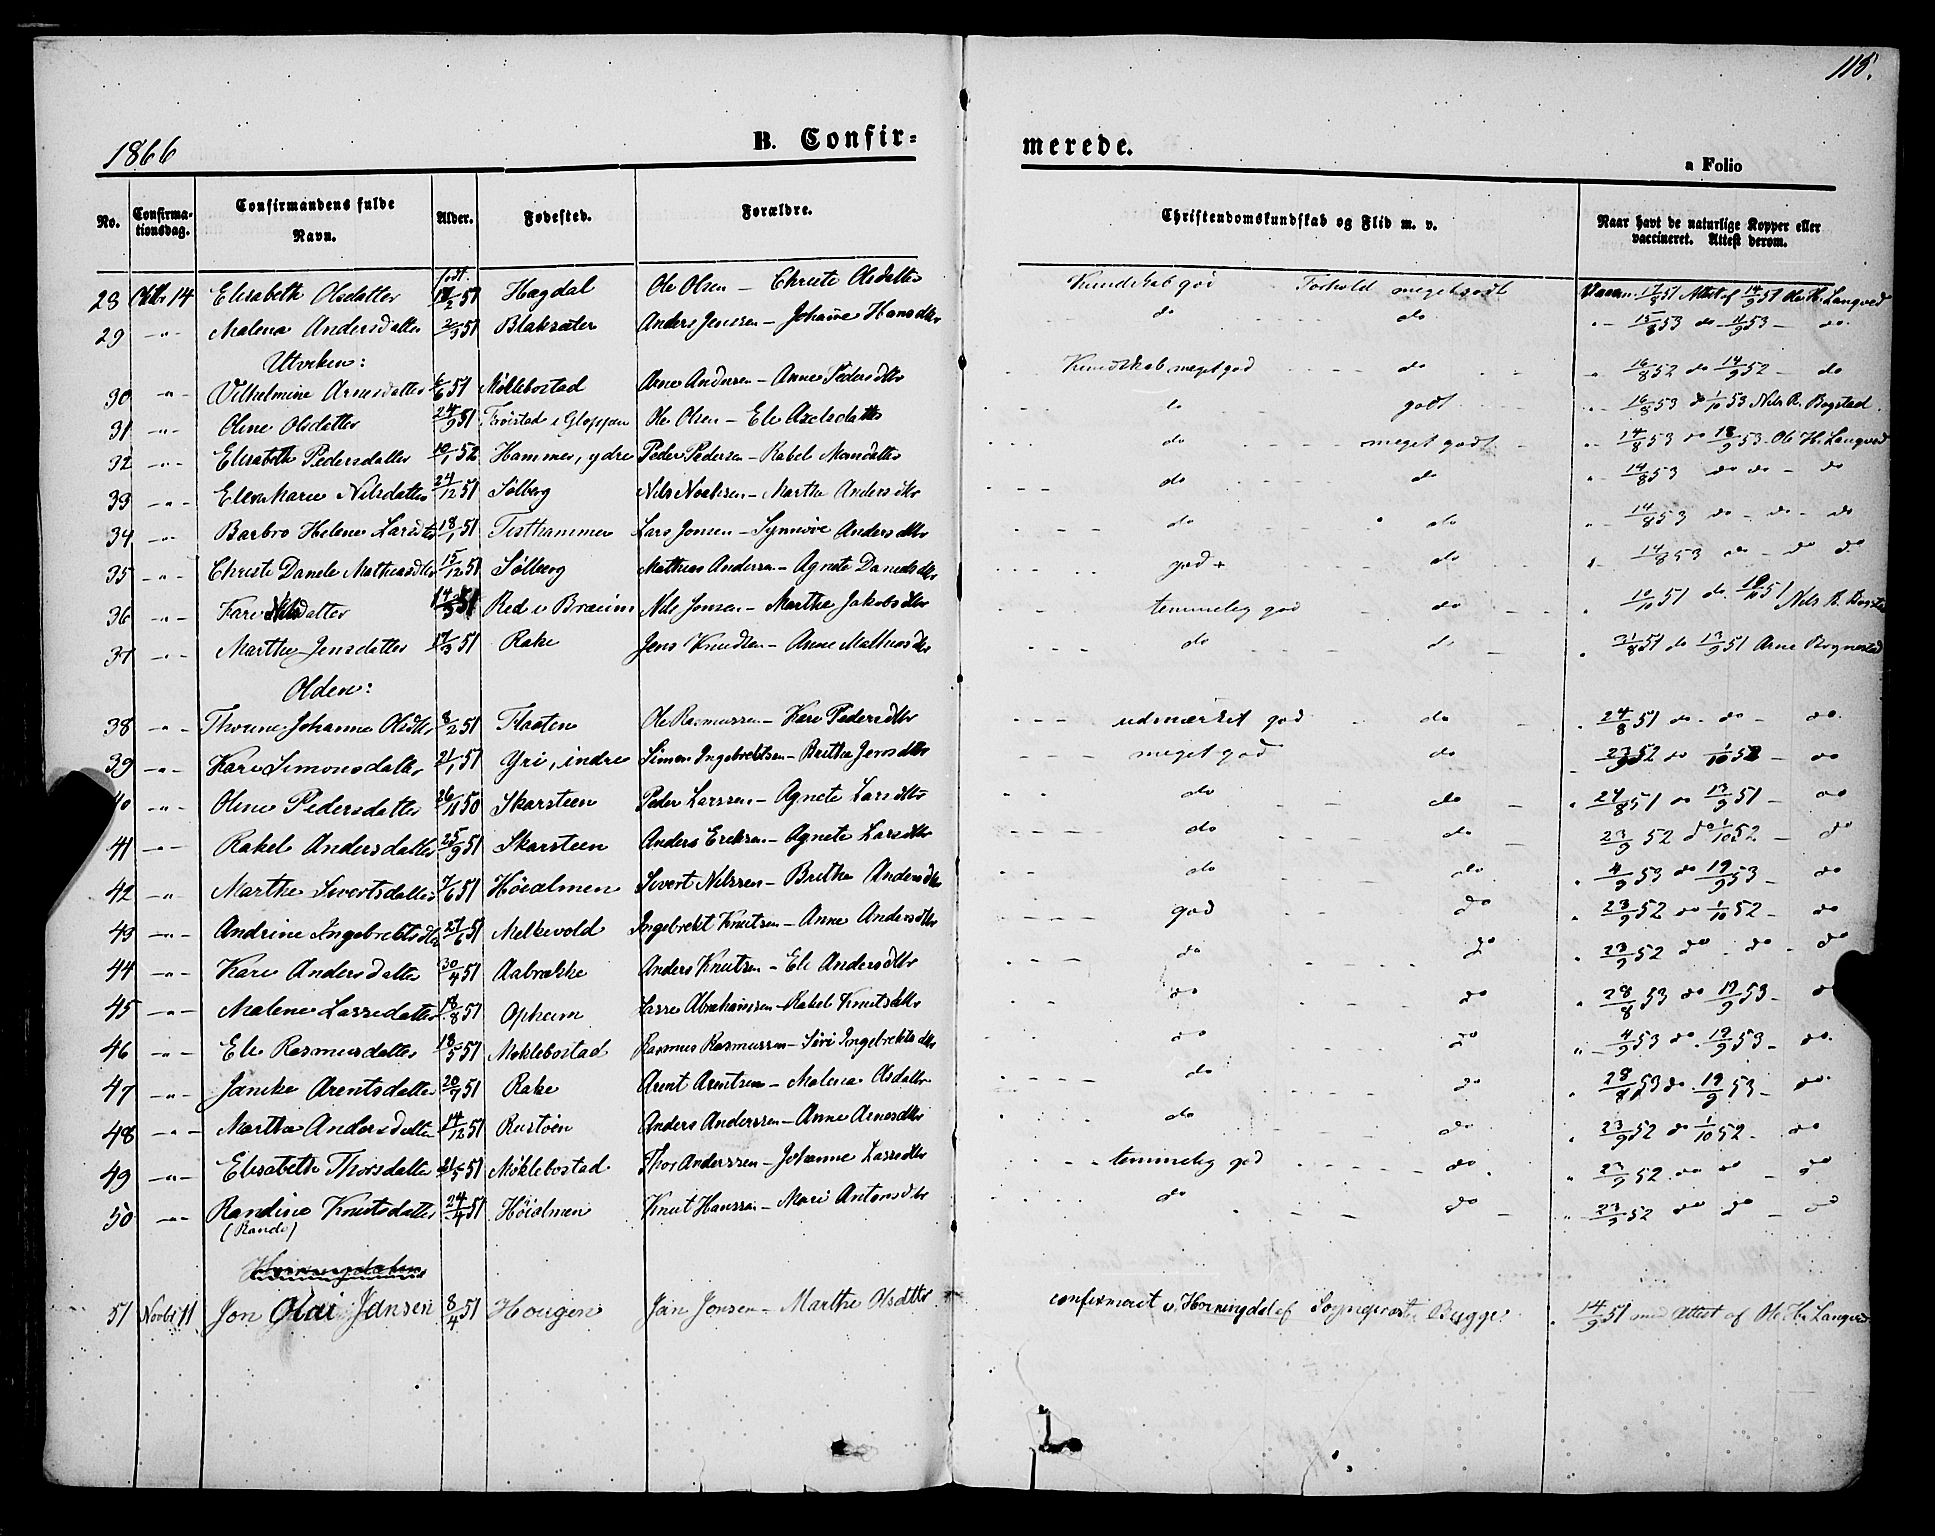 115.
1866
B. Confirmerede.
a Folio
No. Confirmationsdag. Confirmandens fulde Navn. Alder. Fødested. Forældre. Christendomskundskab og Flid m. v. Naar havt de naturlige Kopper eller vaccineret. Attest derom.
født
28 Octbr 14 Elisabeth Olsdatter 51 Hagdal Ole Olsen - Christi Olsdatter Kundskab god Forhold meget godt Vaccin. 17/8 51 Attest af 14/9 51 Ole H. Langved
29 -"- Malena Andersdatter 2/3 51 Blaksæter Anders Jenssen - Johanne Hansdtr do do "- 15/8 53 do 11/9 53 - do.
Utviken:
30 -"- Vilhelmine Arnesdatter 6/6 51 Møklebostad Arne Andersen - Anne Pedersdtr Kundskab meget god do " 16/8 52 do 14/9 52 - do
31 -"- Oline Olsdatter 24/9 51 Frøistad i Gloppen Ole Olsen - Eli Axelsdatter do godt "- 16/8 53 do 1/10 53 Nils R. Bogstad.
32 -"- Elisabeth Pedersdatter 10/1 52 Hammer, ydre Peder Pedersen - Rakel Monsdatter do meget godt "- 14/8 53 do 18/9 53 - Ole H. Langved
33 -"- Elen Marie Nilsdatter 24/12 51 Sølberg Nils Noahsen - Martha Andersdtr do do " 14/8 53 do do - do
34 -"- Barbro Helene Larsdtr 18/1 51 Tisthammer Lars Jonsen - Synnøve Andersdtr do do "- 14/8 53 do - do - do
35 -"- Christi Danele Mathiasdtr 15/12 51 Sølberg Mathias Andersen - Agnete Danielsdtr god + do "- 14/8 53 do - do do
36 -"- Kari Nilsdatter 51 Red i Breim Nils Jonsen - Martha Jakobsdtr temmelig god do " 10/10 51 do 51 Nils R. Bogstad
37 -"- Martha Jensdatter 17/3 51 Rake Jens Knudsen - Anne Mathiasdtr do do " 31/8 51 do 13/9 51 Arne Bognestad
Olden:
38 -"- Thorine Johanne Olsdtr 8/2 51 Flaaten Ole Rasmussen - Kari Pedersdtr udmærket god do " 24/8 51 do - do - do.
39 -"- Kari Simonsdatter 21/1 51 Yri, indre Simon Ingebrektsen - Brithe Jensdtr meget god do 23/9 52 do 1/10 52 - do
40 -"- Oline Pedersdatter 26/11 50 Skarsteen Peder Larssen - Agnete Larsdtr do do " 24/8 51 do 13/9 51 - do
41 -"- Rakel Andersdatter 25/9 51 Skarsteen Anders Eriksen - Agnete Larsdtr do do 23/9 52 do 1/10 52 - do
42 -"- Marthe Sivertsdatter 7/6 51 Høialmen Sivert Nilssen - Brithe Andersdtr do do " 4/9 53 do 19/9 53 - do
43 -"- Andrine Ingebrektsdtr 27/6 51 Melkevold Ingebrekt Knutsen - Anne Andersdtr god do " 23/9 52 do 1/10 52 - do
44 -"- Kari Andersdatter 30/4 51 Aabrække Anders Knutsen - Eli Andersdtr do do " 23/9 52 do - do - do
45 -"- Malene Lassedatter 18/8 51 Opheim Lasse Abrahamsen - Rakel Knutsdtr do do " 28/8 53 do 19/9 53 - do
46 -"- Eli Rasmusdatter 18/5 51 Møklebostad Rasmus Rasmussen - Siri Ingebrektsdtr do do "- 4/9 53 do 19/9 53 - do.
47 -"- Janike Arentsdatter 20/9 51 Rake Arent Arentsen - Malena Olsdatter do do " 28/8 53 do 19/9 53 - do.
48 -"- Martha Andersdatter 14/12 51 Rustøen Anders Anderssen - Anne Arnesdtr do do " 23/9 52 do 1/10 52 - do
49 -"- Elisabeth Thorsdatter 51 Møklebostad Thor Anderssen - Johanne Lassedtr temmelig god do " 23/9 52 do do - do
50 -"- Randine Knutsdatter 24/4 51 Høialmen Knut Hanssen - Mari Antonsdtr do do " 23/9 52 do do - do
(Randi)
Horningdalen
51 Novbr 11 Jon Olai Jansen 8/4 51 Hougen Jan Jonsen - Marthe Olsdtter confirmeret i Horningdal af Sognepræst Bugge " 14/9 51 med Attest af Ole H. Langved